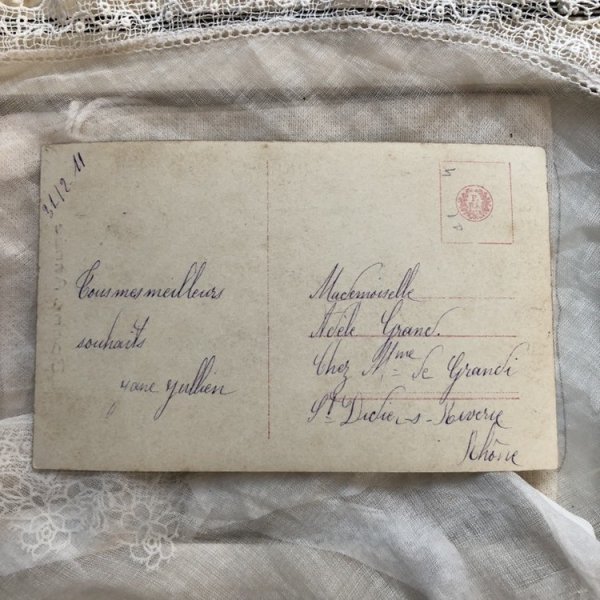 31/2-11
Tous mes meilleurs
souhaits
Jane Jullien
Mademoiselle
Adèle Grand.
Chez Mme de Grandi
St Didier-s-Riverie
Rhône